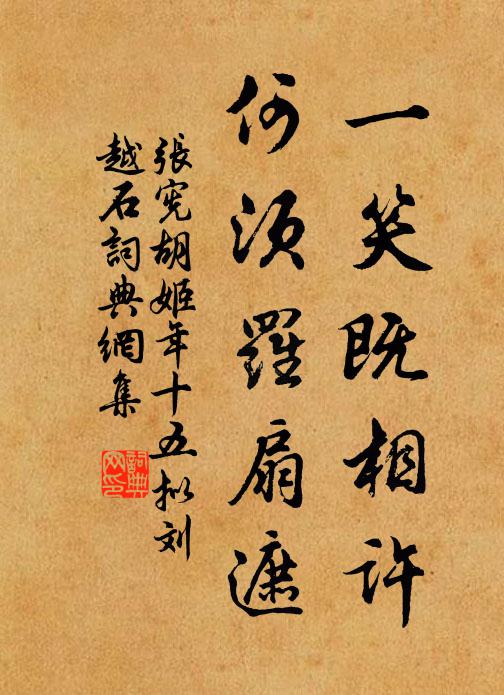 一笑既相许
何须羅扇遮
張宪胡姬年十五拟刘
越石詞典網集
詞典網印